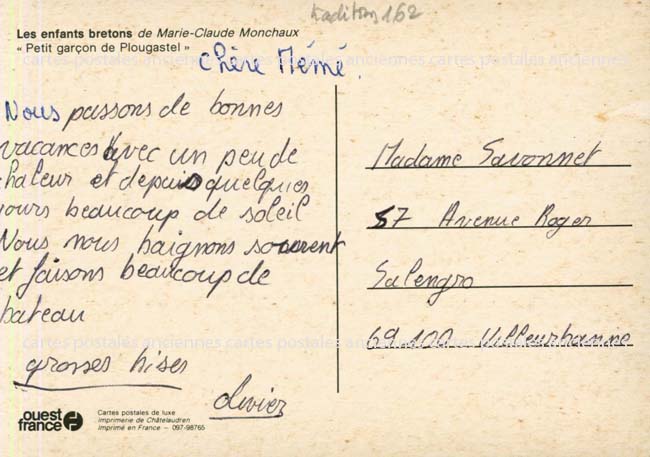 tradition 162
Les enfants bretons de Marie-Claude Monchaux
« Petit garçon de Plougastel »
cartes postales anciennes cartes postales anciennes cartes postales anciennes
Chère Mémé.
Nous passons de bonnes
vacances avec un peu de
chaleur et depuis quelques
jours beaucoup de soleil
Nous nous baignons souvent
et faisons beaucoup de
bateau
grosses bises
Olivier
Madame Savonnet
57 Avenue Roger
Salengro
69 100 Villeurbanne
cartes postales anciennes cartes postales anciennes cartes postales anciennes
ouest
france
Cartes postales de luxe
Imprimerie de Châtelaudren
Imprimé en France – 097-98765